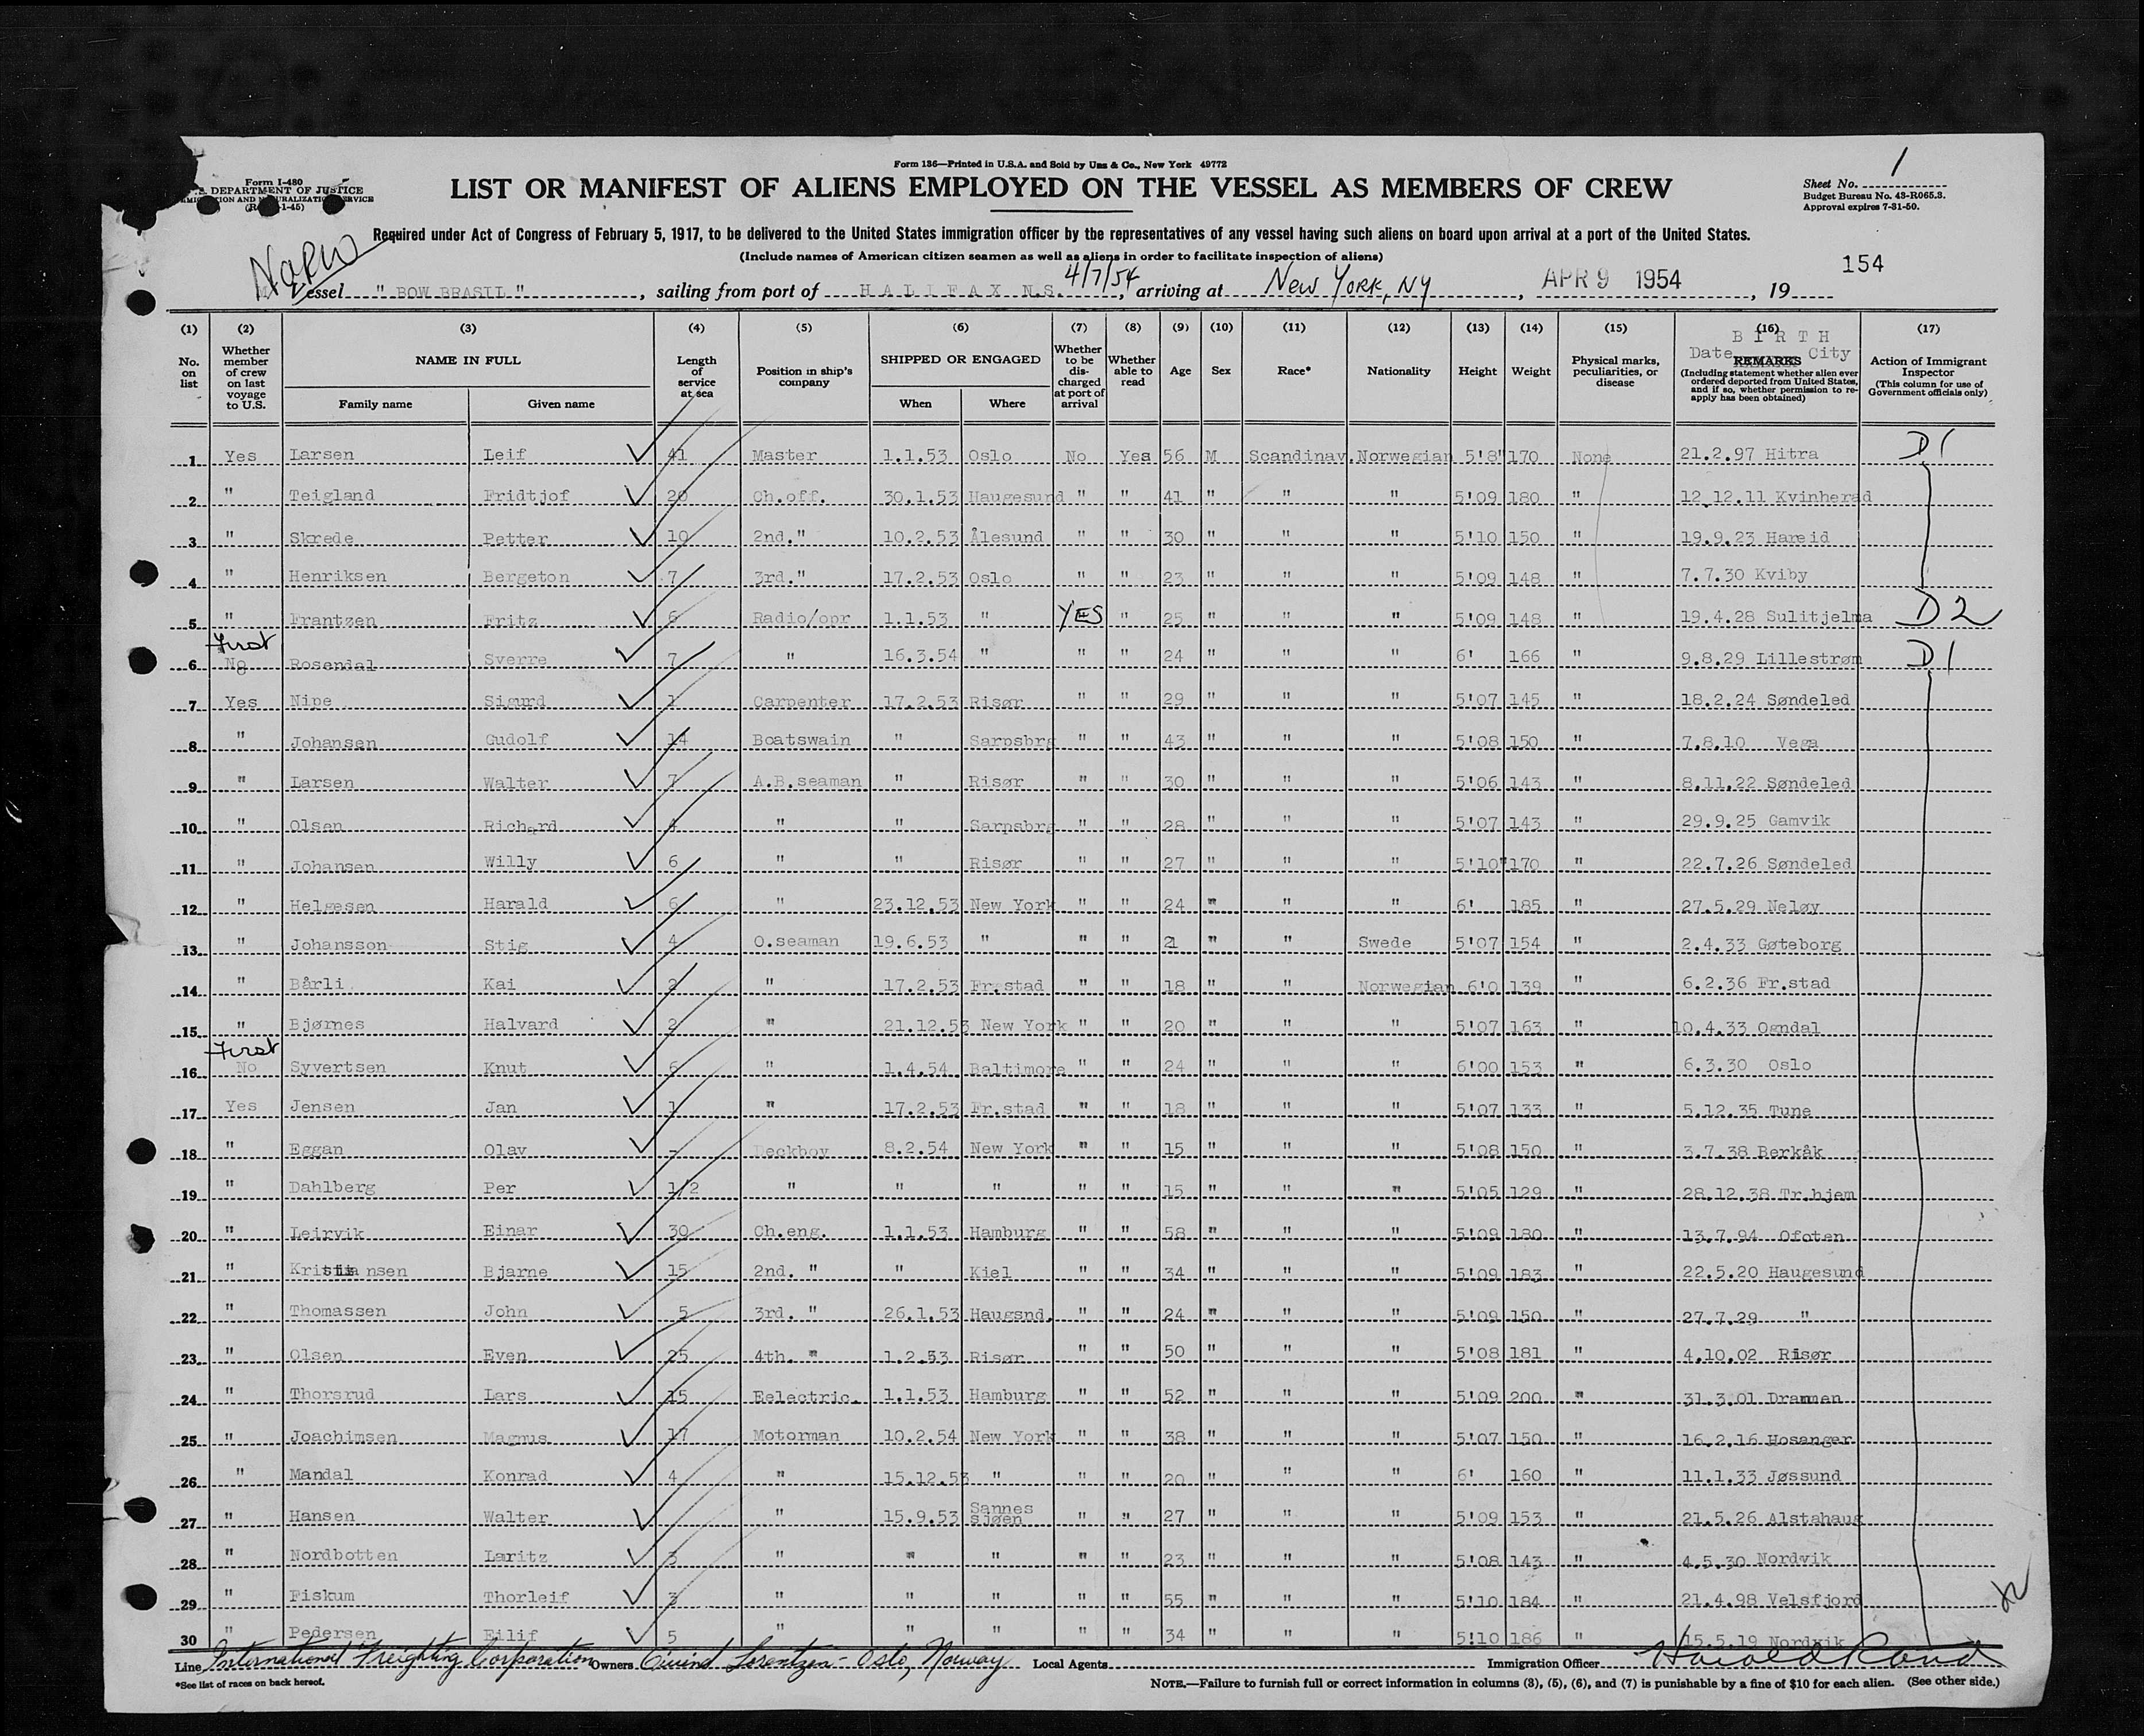 Form 136—Printed in U.S.A. and Sold by Unz & Co., New York 49772
1
Form I-480
DEPARTMENT OF JUSTICE
ION AND NATURALIZATION SERVICE
1-45)
LIST OR MANIFEST OF ALIENS EMPLOYED ON THE VESSEL AS MEMBERS OF CREW
Sheet No.
Budget Bureau No. 43-R065.3.
Approval expires 7-31-50.
Required under Act of Congress of February 5, 1917, to be delivered to the United States immigration officer by the representatives of any vessel having such aliens on board upon arrival at a port of the United States.
(Include names of American citizen seamen as well as aliens in order to facilitate inspection of aliens)
Norw
154
Vessel " BOW BRASIL ", sailing from port of HALIFAX N.S. 4/7/54, arriving at New York, NY, APR 9 1954, 19
(1) (2) (3) (4) (5) (6) (7) (8) (9) (10) (11) (12) (13) (14) (15) (16) (17)
No. on list
Whether member of crew on last voyage to U.S.
NAME IN FULL
Family name Given name
Length of service at sea
Position in ship's company
SHIPPED OR ENGAGED
When Where
Whether to be discharged at port of arrival
Whether able to read
Age
Sex
Race*
Nationality
Height
Weight
Physical marks, peculiarities, or disease
BIRTH
Date REMARKS City
(Including statement whether alien ever ordered deported from United States, and if so, whether permission to reapply has been obtained)
Action of Immigrant Inspector
(This column for use of Government officials only)
1 Yes Larsen Leif 41 Master 1.1.53 Oslo No Yes 56 M Scandinav. Norwegian 5'8" 170 None 21.2.97 Hitra D1
2 " Teigland Fridtjof 20 Ch.off. 30.1.53 Haugesund " " 41 " " " 5'09 180 " 12 12.11 Kvinherad
3 " Skrede Petter 10 2nd." 10.2.53 Ålesund " " 30 " " " 5'10 150 " 19.9.23 Hareid
4 " Henriksen Bergeton 7 3rd." 17.2.53 Oslo " " 23 " " " 5'09 148 " 7.7.30 Kviby
5 " Frantzen Fritz 6 Radio/opr 1.1.53 " YES " 25 " " " 5'09 148 " 19.4.28 Sulitjelma D2
6 First No Rosendal Sverre 7 " 16.3.54 " " " 24 " " " 6' 166 " 9.8.29 Lillestrøm D1
7 Yes Nipe Sigurd 1 Carpenter 17.2.53 Risør " " 29 " " " 5'07 145 " 18.2.24 Søndeled
8 " Johansen Gudolf 14 Boatswain " Sarpsbrg " " 43 " " " 5'08 150 " 7.8.10 Vega
9 " Larsen Walter 7 A.B.seaman " Risør " " 30 " " " 5'06 143 " 8.11.22 Søndeled
10 " Olsen Richard 4 " " Sarpsbrg " " 28 " " " 5'07 143 " 29.9.25 Gamvik
11 " Johansen Willy 6 " " Risør " " 27 " " " 5'10" 170 " 22.7.26 Søndeled
12 " Helgesen Harald 6 " 23.12.53 New York " " 24 " " " 6' 185 " 27.5.29 Neløy
13 " Johansson Stig 4 O.seaman 19.6.53 " " " 21 " " Swede 5'07 154 " 2.4.33 Gøteborg
14 " Bårli Kai 2 " 17.2.53 Fr.stad " " 18 " " Norwegian 6'0 139 " 6.2.36 Fr.stad
15 " Bjørnes Halvard 2 " 21.12.53 New York " " 20 " " " 5'07 163 " 10.4.33 Ogndal
16 First No Syvertsen Knut 6 " 1.4.54 Baltimore " " 24 " " " 6'00 153 " 6.3.30 Oslo
17 Yes Jensen Jan 1 " 17.2.53 Fr.stad " " 18 " " " 5'07 133 " 5.12.35 Tune
18 " Eggan Olav - Deckboy 8.2.54 New York " " 15 " " " 5'08 150 " 3.7.38 Berkåk
19 " Dahlberg Per 1/2 " " " " " 15 " " " 5'05 129 " 28.12.38 Tr.hjem
20 " Leirvik Einar 30 Ch.eng. 1.1.53 Hamburg " " 58 " " " 5'09 180 " 13.7.94 Ofoten
21 " Kristiansen Bjarne 15 2nd. " " Kiel " " 34 " " " 5'09 183 " 22.5.20 Haugesund
22 " Thomassen John 5 3rd. " 26.1.53 Haugsnd. " " 24 " " " 5'09 150 " 27.7.29 "
23 " Olsen Even 25 4th. " 1.2.53 Risør " " 50 " " " 5'08 181 " 4.10.02 Risør
24 " Thorsrud Lars 15 Eelectric. 1.1.53 Hamburg " " 52 " " " 5'09 200 " 31.3.01 Drammen
25 " Joachimsen Magnus 17 Motorman 10.2.54 New York " " 38 " " " 5'07 150 " 16.2.16 Hosanger
26 " Mandal Konrad 4 " 15.12.53 " " " 20 " " " 6' 160 " 11.1.33 Jøssund
27 " Hansen Walter " 15.9.53 Sannes sjøen " " 27 " " " 5'09 153 " 21.5.26 Alstahaug
28 " Nordbotten Laritz 3 " " " " " 23 " " " 5'08 143 " 4.5.30 Nordvik
29 " Fiskum Thorleif 3 " " " " " 55 " " " 5'10 184 " 21.4.98 Velsfjord
30 " Pedersen Eilif 5 " " " " " 34 " " " 5'10 186 " 15.5.19 Nordvik
Line International Freighting Corporation Owners Oivind Lorentzen - Oslo, Norway Local Agents Immigration Officer Harold
*See list of races on back hereof.
NOTE.—Failure to furnish full or correct information in columns (3), (5), (6), and (7) is punishable by a fine of $10 for each alien. (See other side.)